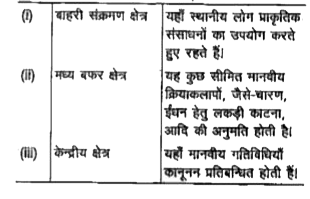 (i) बाहरी संक्रमण क्षेत्र यहाँ स्थानीय लोग प्राकृतिक
संसाधनों का उपयोग करते
हुए रहते हैं।
(ii) मध्य बफर क्षेत्र यह कुछ सीमित मानवीय
क्रियाकलापों, जैसे-चारण,
ईंधन हेतु लकड़ी काटना,
आदि की अनुमति होती है।
(iii) केन्द्रीय क्षेत्र यहाँ मानवीय गतिविधियाँ
कानूनन प्रतिबन्धित होती हैं।